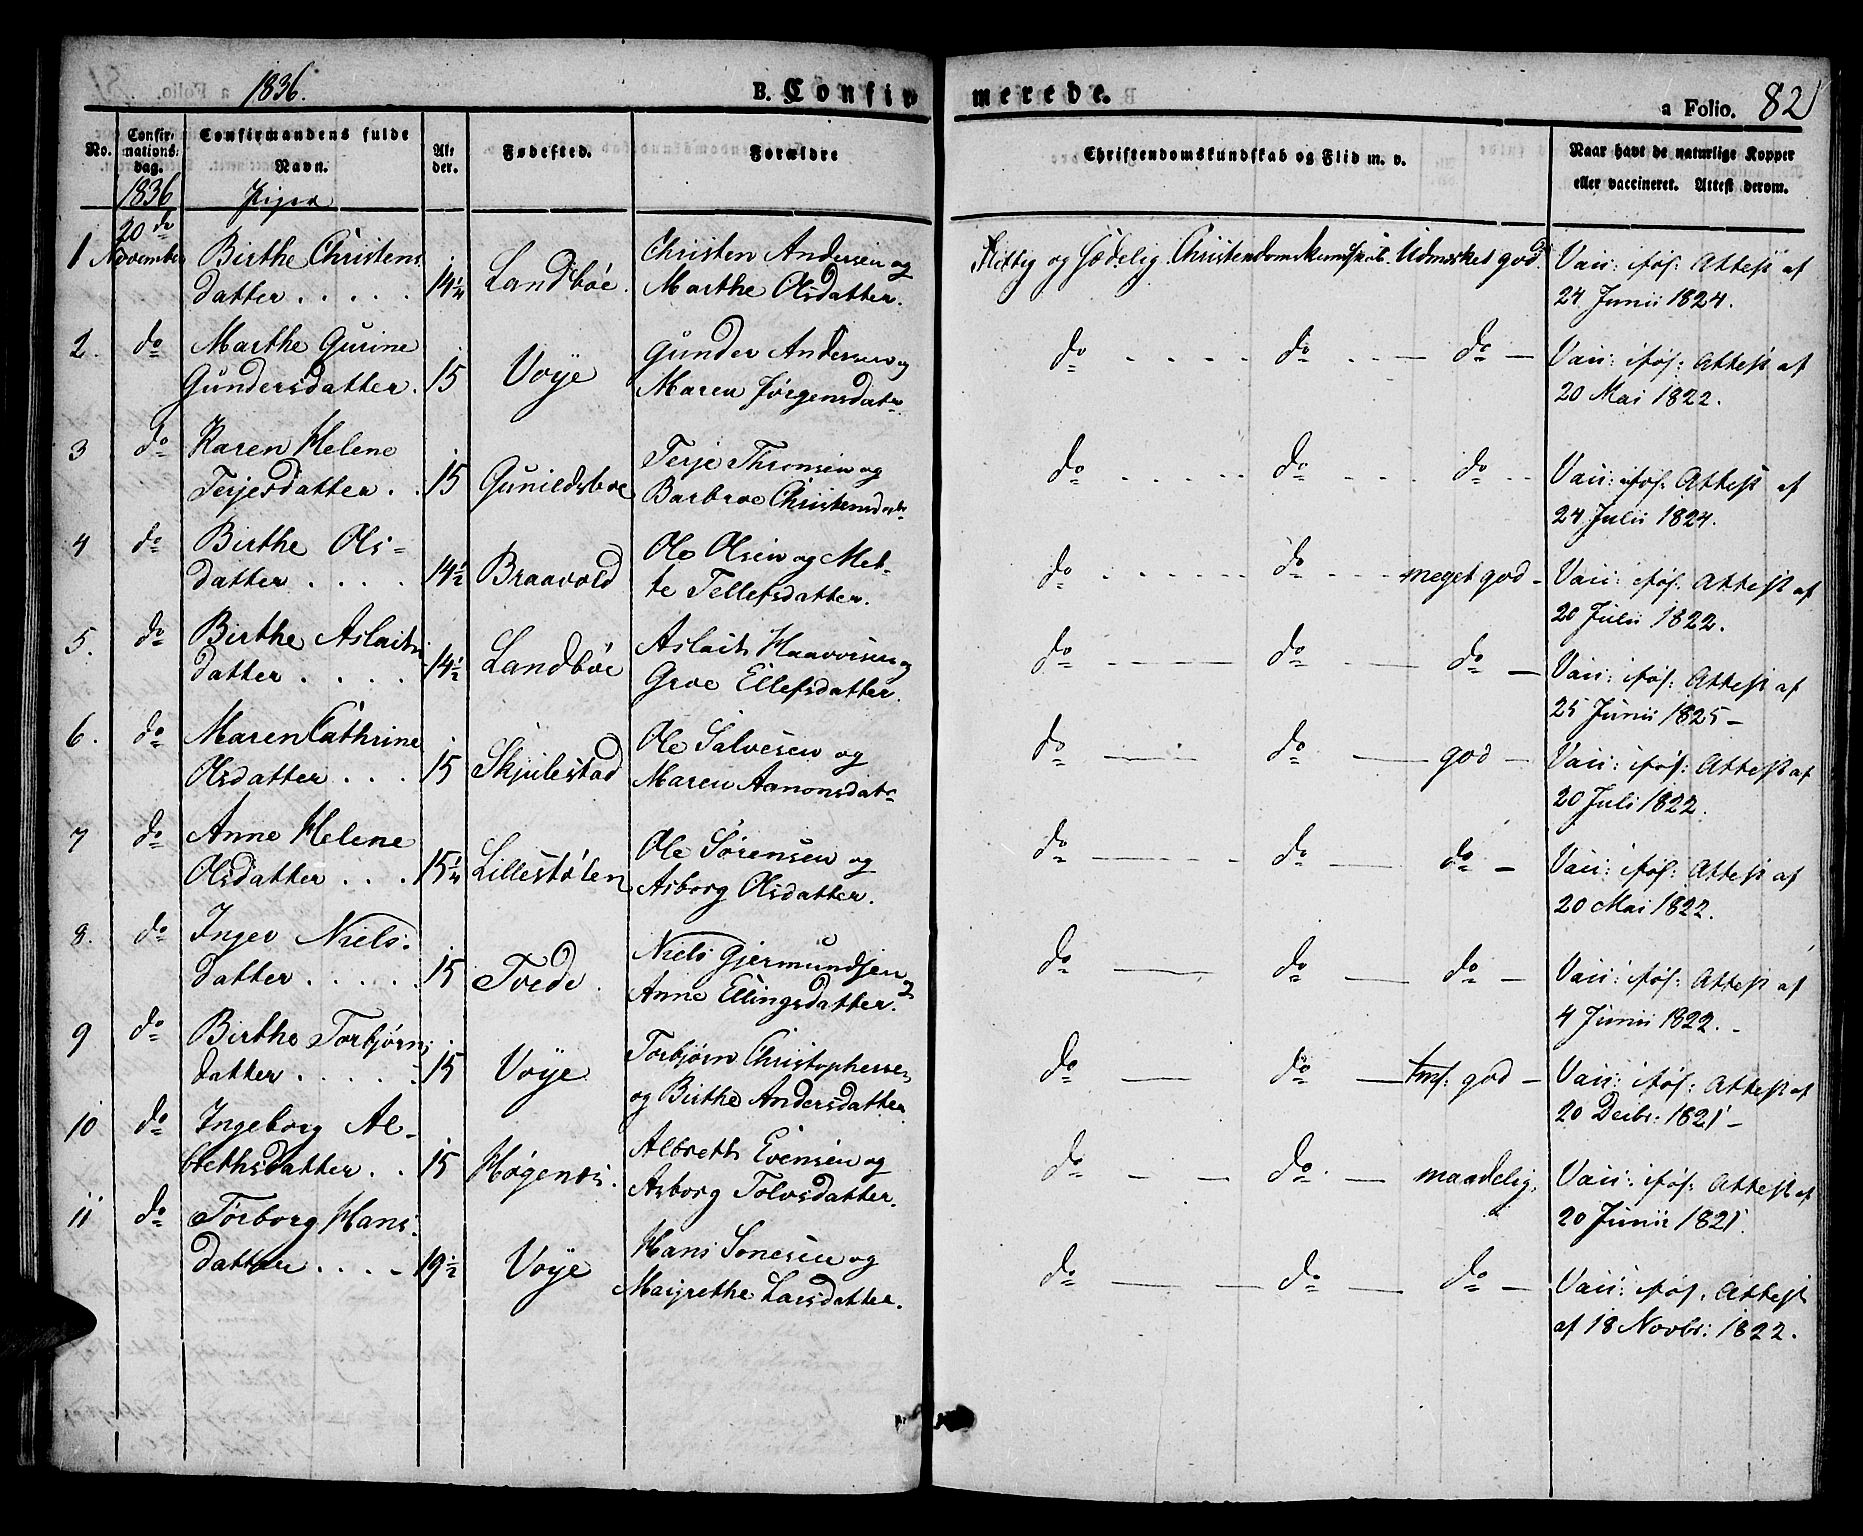 1836. B. Confirmerede. a Folio. 82
No. Confirmations dag. Confirmandens fulde Navn. Alder. Fødested. Forældre Christendomskundskab og Flid m. v. Naar havt de naturlige Kopper eller vaccineret. Attest derom.
1836 Piger
1 20de November Birthe Christens 14¼ Landbøe. Christen Andersen og Flittig og sædelig. Christendomskundskab. Udmærket god. Vacc: iføl: Attest af
datter..... Marthe Olsdatter. 24 Junii 1824.
2. do Marthe Gurine 15 Voje Gunder Andersen og do do do Vacc: iføl: Attest af
Gundersdatter. Maren Jørgensdatr 20 Mai 1822.
3 do Karen Helene 15 Gunildsboe Terje Thronsen og do do do Vacc: iføl: Attest af
Terjesdatter.. Barbroe Christensdatr 24 Julii 1824.
4 do Birthe Ols- 14½ Braavold Ole Olsen og Met- do do meget god Vacc: iføl: Attest af
datter.... te Tellefsdatter. 20 Julii 1822.
5. do Birthe Aslaks 14½ Landbøe Aslach Haavorsen og do do do Vacc: iføl: Attest af
datter.... Groe Ellefsdatter. 25 Junii 1825
6. do Maren Cathrine 15 Skjulestad Ole Salvesen og do do god Vacc: iføl: Attest af
Olsdatter... Maren Aanonsdatr 20 Juli 1822.
7 do Anne Helene 15¼ Lillestølen Ole Sørensen og do do do Vacc: iføl: Attest af
Olsdatter... Asborg Olsdatter. 20 Mai 1822.
8. do Inger Niels- 15 Tvede. Niels Gjermundsen og do do do Vacc: iføl: Attest af
datter..... Anne Ellingsdatter. 4 Junii 1822.
9 do Birthe Torbjørns 15 Voje Torbjørn Christophersen do do tml. god Vacc: iføl: Attest af
datter..... og Birthe Andersdatter 20 Decbr: 1821
10 do Ingeborg Al- 15 Høgenæs. Albreth Evensen og do do maadelig. Vacc: iføl: Attest af
brethsdatter.. Asborg Tolvsdatter. 20 Junii 1821
11 do Torborg Hans- 19½ Voje Hans Sonesen og do do do Vacc: iføl: Attest
datter.... Margrethe Larsdatter. af 18 Novbr: 1822.